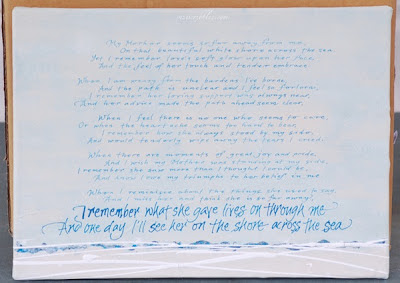 My Mother seems so far away from me,
On that beautiful white shore across the sea.
Yet I remember love's soft glow upon her face,
And the feel of her touch and tender embrace.
When I am weary from the burdens I've borne,
And the path is unclear and I feel so forlorn,
I remember her loving support was always near,
And her advice made the path ahead seem clear.
When I feel there is no one who seems to care,
Or when the heartache seems too hard to bear,
I remember how she always stood by my side,
And would tenderly wipe away the tears I cried.
When there are moments of great joy and pride,
And I wish my Mother was standing at my side,
I remember she saw more than I thought I could be,
And know I owe my triumphs to her belief in me
When I reminisce about the things she used to say,
And I miss her and feel she is so far away,
I remember what she gave lives on through me
And one day I'll see her on the shore across the sea